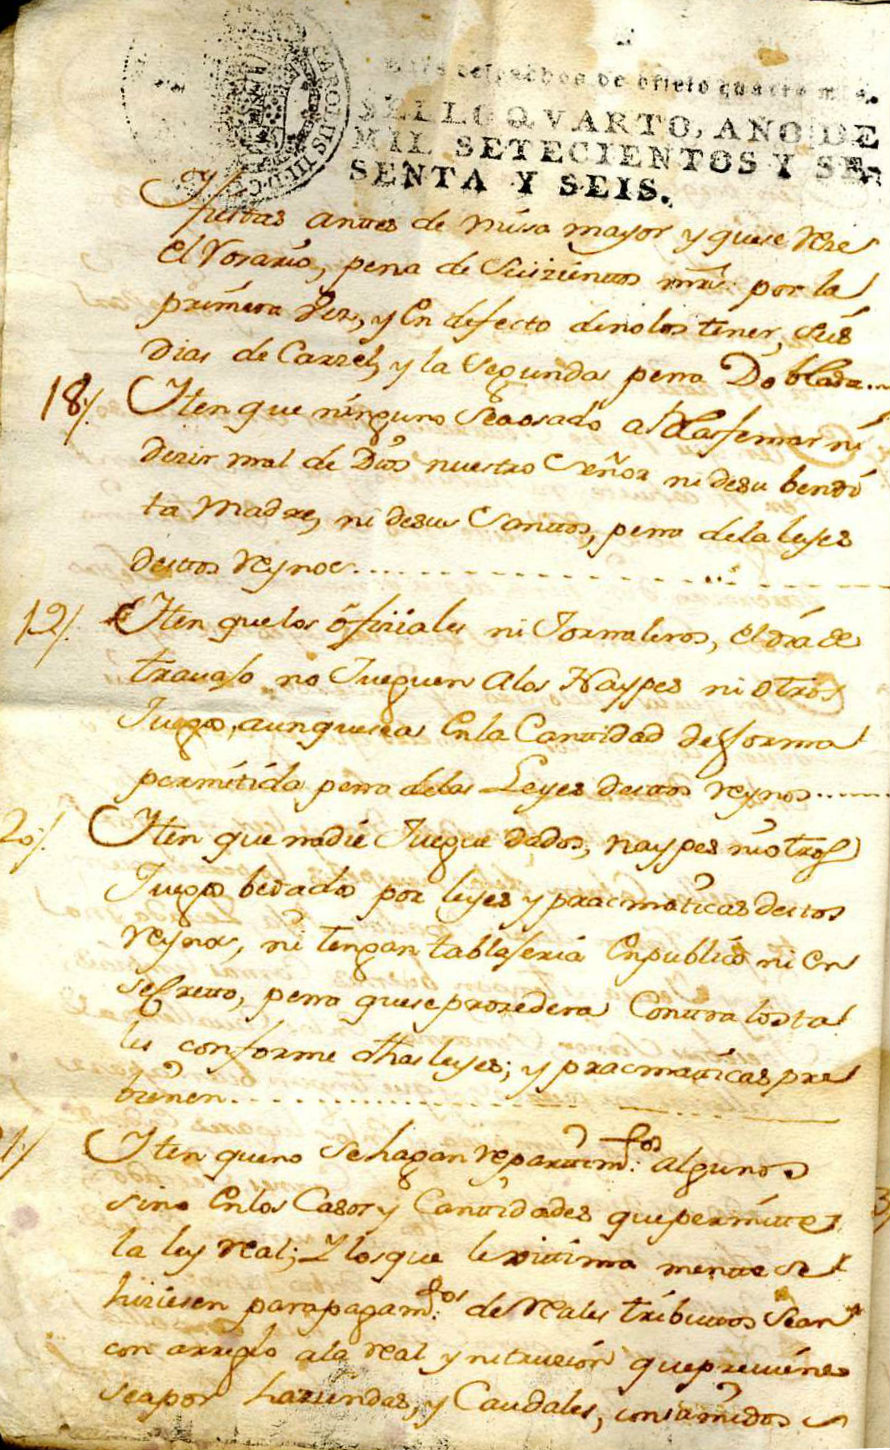 CAROLUS III D. G.
Para despachos de oficio quatro mrs.
SELLO QVARTO, AÑO DE
MIL SETECIENTOS Y SE-
SENTA Y SEIS.
fiestas antes de missa mayor y que se reze
el rosario, pena de seizientos mrs. por la
primera vez, y en defecto de no los tener, seis
dias de Carzel, y la segunda pena Doblada...
18/. Iten que ninguno sea osado a blasfemar ni
dezir mal de Dios nuestro Señor ni de su bendi
ta Madre, ni de sus Santos, pena de la leyes
destos reynos............
19/. Iten que los ofiziales ni Jornaleros, el dia de
travajo no Jueguen a los Naypes ni otros
Juegos, aunque sea en la Cantidad de forma
permitida pena de las Leyes destos reynos......
20/. Iten que nadie Juegue dados, naypes ni otros
Juegos bedados por leyes y pracmaticas destos
reynos, ni tengan tablajeria en publico ni en
secretto, pena que se prozedera Contra los ta
les conforme dhas leyes; y pracmaticas pre
bienen............
21/. Iten que no se hagan repartim.tos algunos
sino en los Casos y Cantidades que permitte
la ley real; Y los que lexittima mente se
hiziesen para pagam.tos de reales tributtos sean
con arreglo a la real ynstruzion que previene
sea por haziendas, y Caudales, consamidos